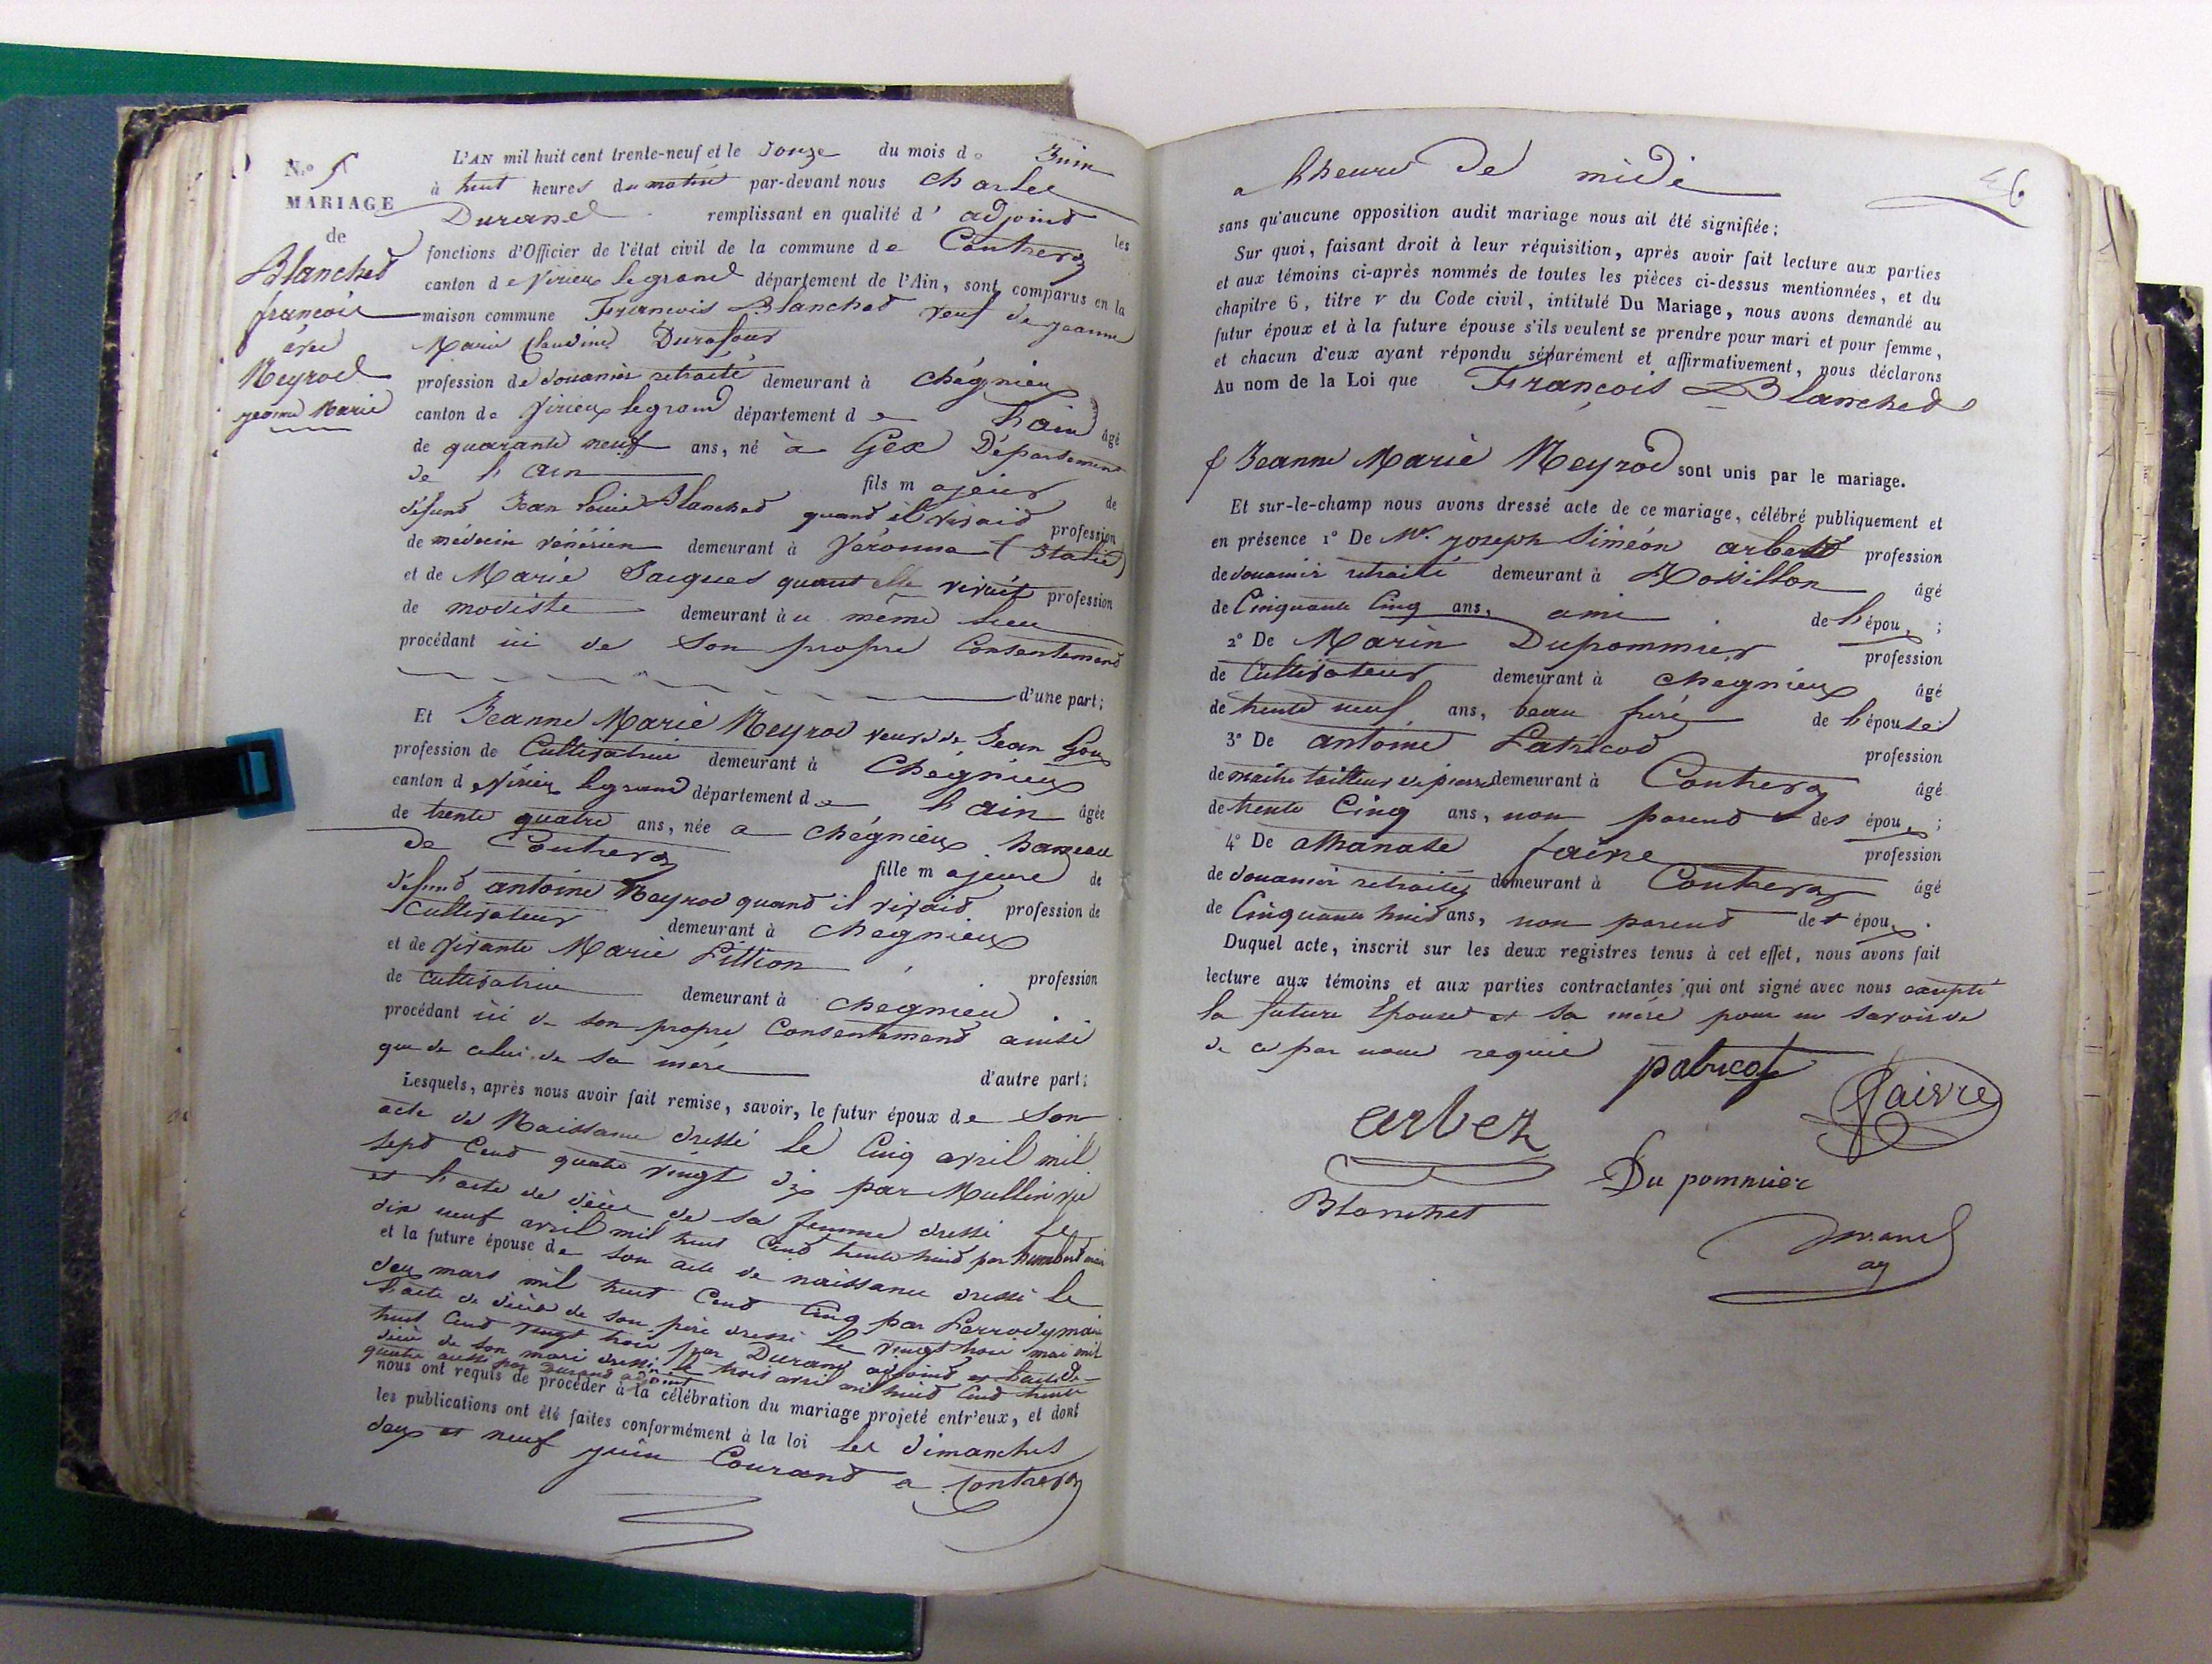 N.° 5
MARIAGE
de
Blanched
françois
avec
Neyrod
jeanne Marie
L'AN mil huit cent trente-neuf et le douze du mois de Juin
à huit heures du matin par-devant nous Charles
Durand remplissant en qualité d' adjoind les
fonctions d'Officier de l'état civil de la commune de Contrevoz
canton de Virieux legrand département de l'Ain, sont comparus en la
maison commune François Blanched veuf de jeanne
Marie Claudine Durafour
profession de douanier retraité demeurant à Chégnieux
canton de Virieux legrand département de l'ain âgé
de quarante neuf ans, né à Gex Département
de l'ain fils majeur de
défund Jean Louis Blanched quand il vivaid profession
de médecin demeurant à Véronne (Italie)
et de Marie Jacques quant elle vivait profession
de modiste demeurant au même lieu
procédant ici de son propre Consentemend
d'une part;
Et Jeanne Marie Neyrod veuve de Jean Goux
profession de Cultivatrice demeurant à Chégnieux
canton de Virieux legrand département de l'ain âgée
de trente quatre ans, née à Chégnieux hameau
de Contrevoz fille majeure de
défund antoine Neyrod quand il vivaid profession de
Cultivateur demeurant à Chegnieux
et de vivante Marie Littion profession
de Cultivatrice demeurant à Chegnieu
procédant ici de son propre Consentemend ainsi
que de celui de sa mère d'autre part;
Lesquels, après nous avoir fait remise, savoir, le futur époux de son
acte de Naissance dressé le Cinq avril mil
sept Cend quatre vingt dix par
et l'acte de décès de sa femme dressé le
dix neuf avril mil huit Cend trente huid par humbert maire
et la future épouse de son acte de naissance dressé le
deux mars mil huit Cend Cinq par Perrody maire
l'acte de décès de son père dressé le vingt trois mai mil
huit Cend vingt trois par Durand adjoind et l'acte de
décès de son mari dressé le trois avril mil huid Cend trente
quatre aussi par Durand adjoint
nous ont requis de procéder à la célébration du mariage projeté entr'eux, et dont
les publications ont été faites conformément à la loi les dimanches
deux et neuf juin Courand a Contrevoz
46
a l'heure de midi
sans qu'aucune opposition audit mariage nous ait été signifiée;
Sur quoi, faisant droit à leur réquisition, après avoir fait lecture aux parties
et aux témoins ci-après nommés de toutes les pièces ci-dessus mentionnées, et du
chapitre 6, titre V du Code civil, intitulé Du Mariage, nous avons demandé au
futur époux et à la future épouse s'ils veulent se prendre pour mari et pour femme,
et chacun d'eux ayant répondu séparément et affirmativement, nous déclarons
Au nom de la Loi que François Blanched
& Jeanne Marie Neyrod sont unis par le mariage.
Et sur-le-champ nous avons dressé acte de ce mariage, célébré publiquement et
en présence 1° De Mr. joseph Siméon profession
de douanier retraité demeurant à Rossillon âgé
de Cinquante Cinq ans, ami de l'époux;
2° De Marin Dupommier profession
de Cultivateur demeurant à Chegnieux âgé
de trente neuf ans, beau frère de l'épouse
3° De antoine Patricod profession
de maître tailleur de pierre demeurant à Contrevoz âgé
de trente Cinq ans, non parend des époux;
4° De athanase faivre profession
de douanier retraité demeurant à Contrevoz âgé
de Cinquante huid ans, non parend des époux.
Duquel acte, inscrit sur les deux registres tenus à cet effet, nous avons fait
lecture aux témoins et aux parties contractantes qui ont signé avec nous excepté
la future Epouse et sa mère pour ne savoir de
de ce par nous requis
patricot
faivre
arbez
Du pommier
Blanchet
Durand
adj